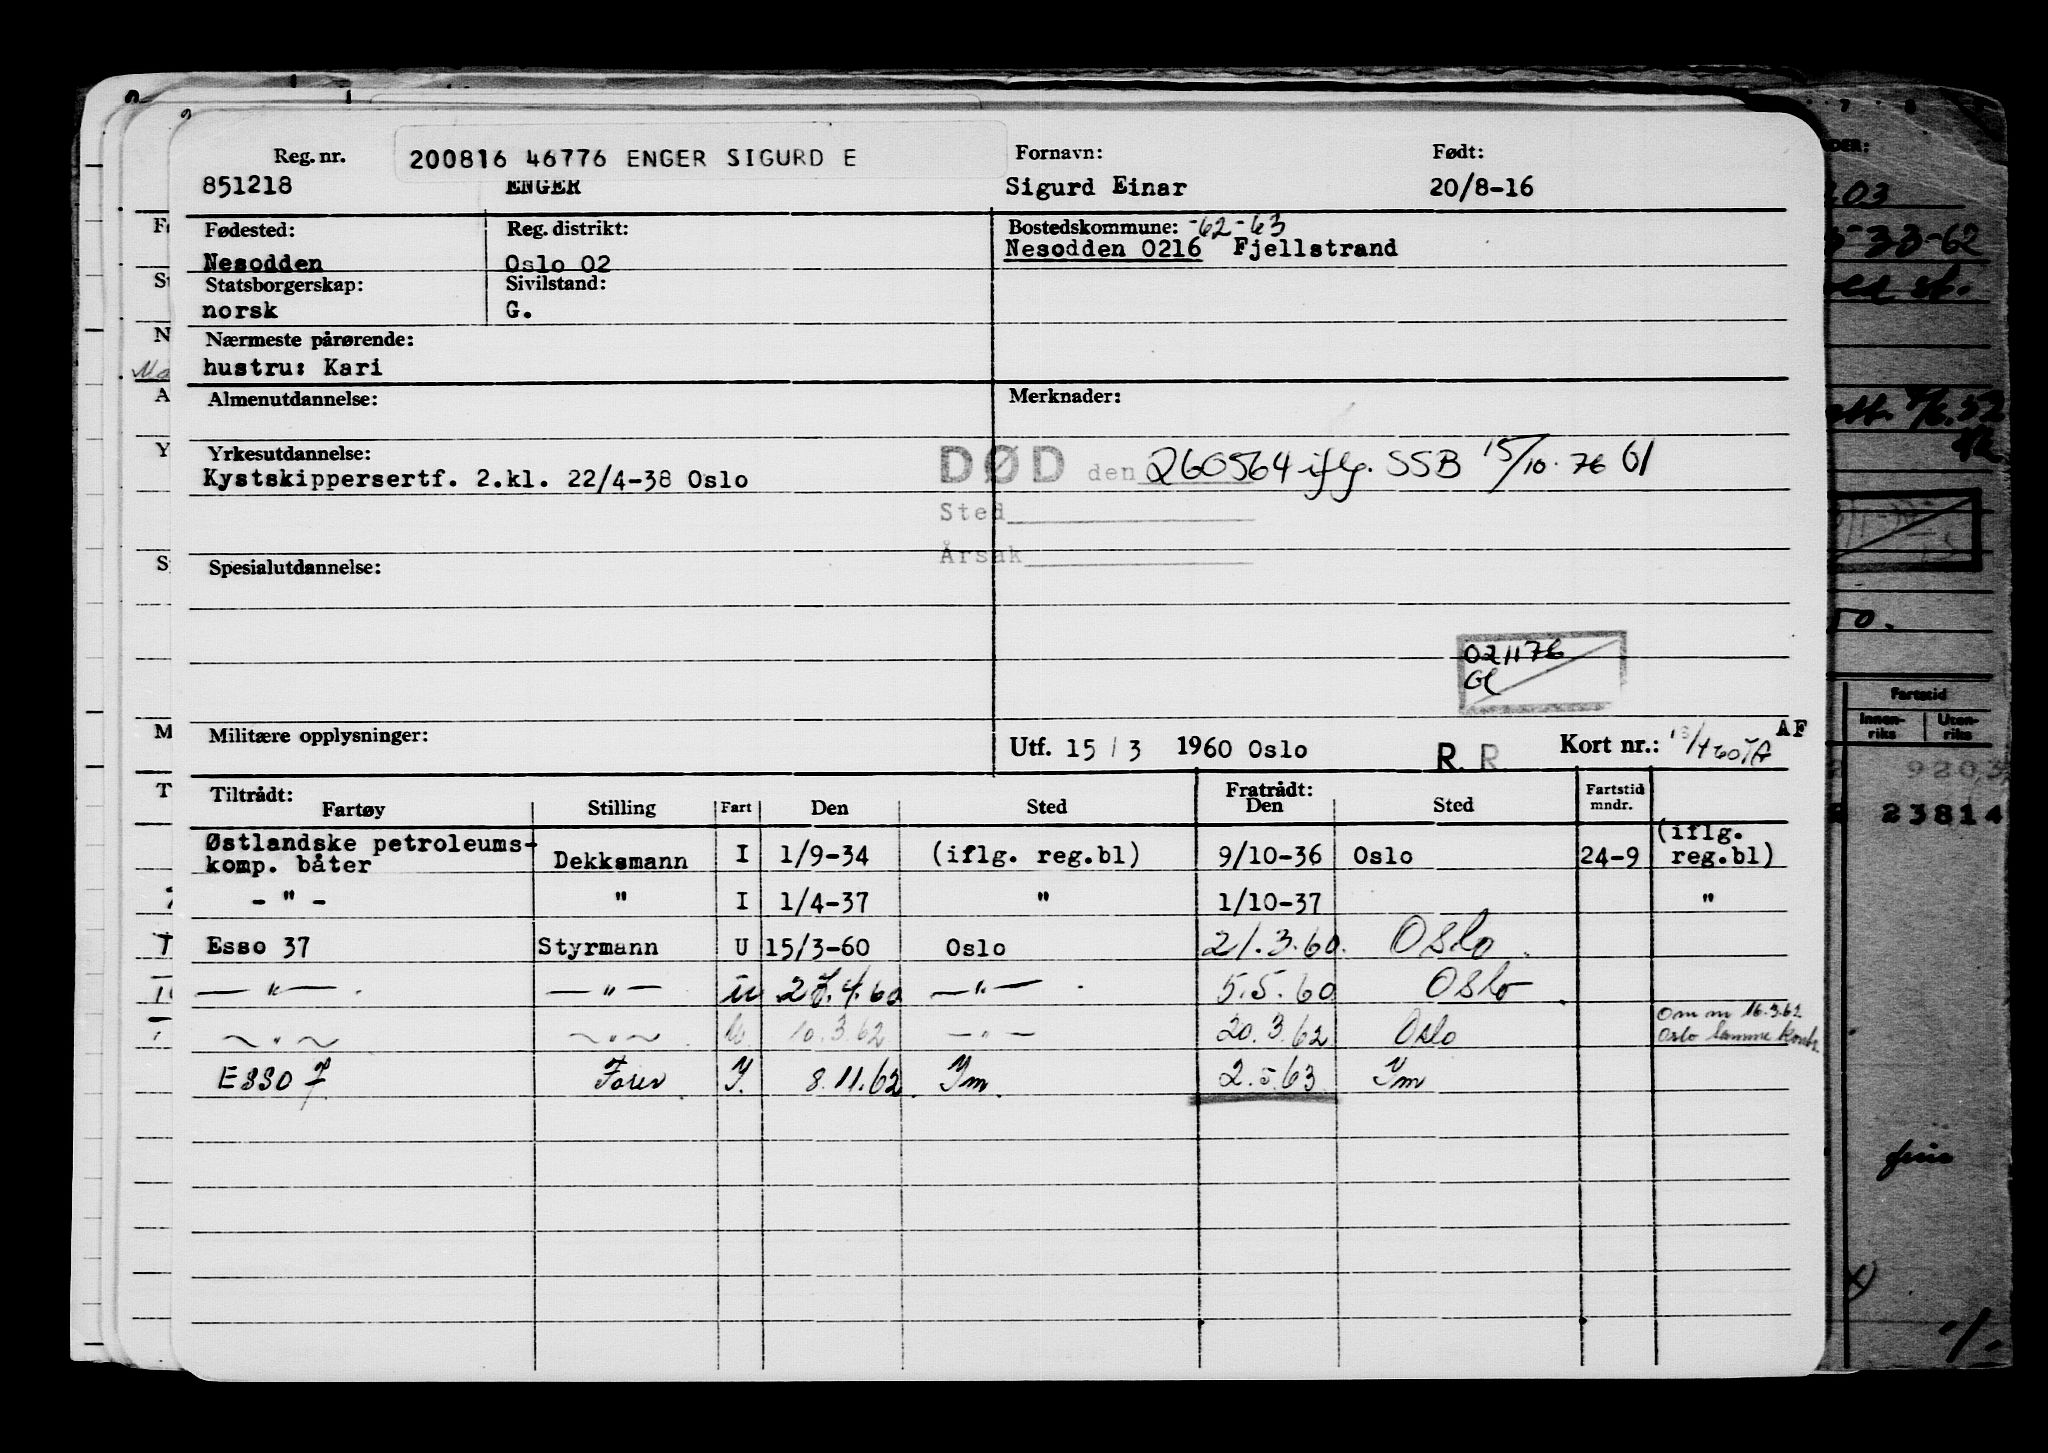 Reg. nr. 200816 46776 ENGER SIGURD E Fornavn: Født:
851218 ENGER Sigurd Einar 20/8-16
Fødested: Reg. distrikt: Bostedskommune: -62-63
Nesodden Oslo 02 Nesodden 0216 Fjellstrand
Statsborgerskap: Sivilstand:
norsk G.
Nærmeste pårørende:
hustru: Kari
Almenutdannelse: Merknader:
Yrkesutdannelse:
Kystskippersertf. 2.kl. 22/4-38 Oslo
DØD den 260564 iflg. SSB 15/10.76 Gl
Sted
Årsak
Spesialutdannelse:
021176
Gl
Militære opplysninger: Utf. 15/3 1960 Oslo R. R Kort nr.: AF
Tiltrådt: Fratrådt: Fartstid
Fartøy Stilling Fart Den Sted Den Sted mndr.
Østlandske petroleums- (iflg.
komp. båter Dekksmann I 1/9-34 (iflg. reg.bl) 9/10-36 Oslo 24-9 reg.bl)
- " - " I 1/4-37 " 1/10-37 "
Esso 37 Styrmann U 15/3-60 Oslo 21.3.60. Oslo
— " — — " — u 27.4.60 — " — 5.5.60 Oslo
— " — — " — U. 10.3.62 — " — 20.3.62 Oslo Om m 16.3.62
Oslo samme kontr.
ESSO 7 Fører I. 8.11.62 Im 2.5.63 Im
DER:
.03
33-62
st.
6.52
50.
Fartstid
Innen- Uten-
riks riks
920,3
23814